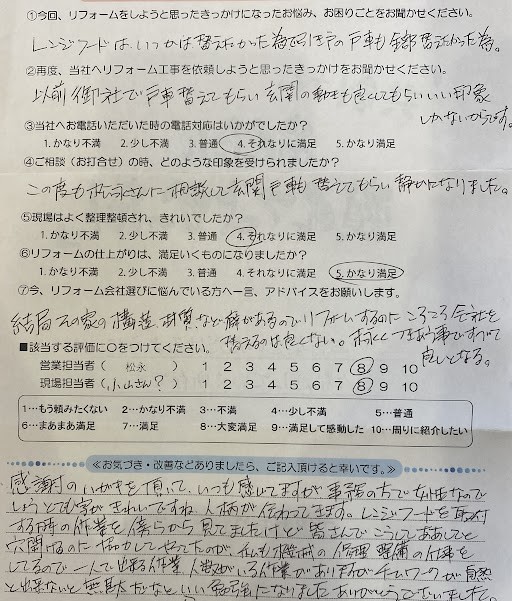 ①今回、リフォームをしようと思ったきっかけになったお悩み、お困りごとをお聞かせください。
レンジフードは、いつかは替えたかった為と引き戸の戸車も全部替えたかった為。
②再度、当社へリフォーム工事を依頼しようと思ったきっかけをお聞かせください。
以前御社で戸車替えてもらい玄関の動きも良くしてもらいいい印象
しかないからです。
③当社へお電話いただいた時の電話対応はいかがでしたか?
1. かなり不満 2. 少し不満 3. 普通 4. それなりに満足 5. かなり満足
④ご相談(お打合せ)の時、どのような印象を受けられましたか?
この度も松永さんに相談して玄関戸車も替えてもらい静かになりました。
⑤現場はよく整理整頓され、きれいでしたか?
1. かなり不満 2. 少し不満 3. 普通 4. それなりに満足 5. かなり満足
⑥リフォームの仕上がりは、満足いくものになりましたか?
1. かなり不満 2. 少し不満 3. 普通 4. それなりに満足 5. かなり満足
⑦今、リフォーム会社選びに悩んでいる方へ一言、アドバイスをお願いします。
結局その家の構造、材質など癖があるのでリフォームするのにころころ会社を
替えるのは良くない。末永くつき合う事ですべて
良いとなる。
■該当する評価に○をつけてください。
営業担当者( 松永 ) 1 2 3 4 5 6 7 8 9 10
現場担当者(小山さん?) 1 2 3 4 5 6 7 8 9 10
1…もう頼みたくない 2…かなり不満 3…不満 4…少し不満 5…普通
6…まあまあ満足 7…満足 8…大変満足 9…満足して感動した 10…周りに紹介したい
≪お気づき・改善などありましたら、ご記入頂けると幸いです。≫
感謝のハガキを頂いて、いつも感じてますが事務の方で女性なので
しょうとても字がきれいですね人柄が伝わってきます。レンジフードを取付
する所の作業を傍らから見てましたけど皆さんでこうしてああしてと
穴開けるのに苦労してやってたのが、私も機械の修理整備の仕事を
してるので一人で出来る作業、人数がいる作業がありますがチームワークが自然
と出来ないと無駄だなといい勉強になりましたありがとうございました。